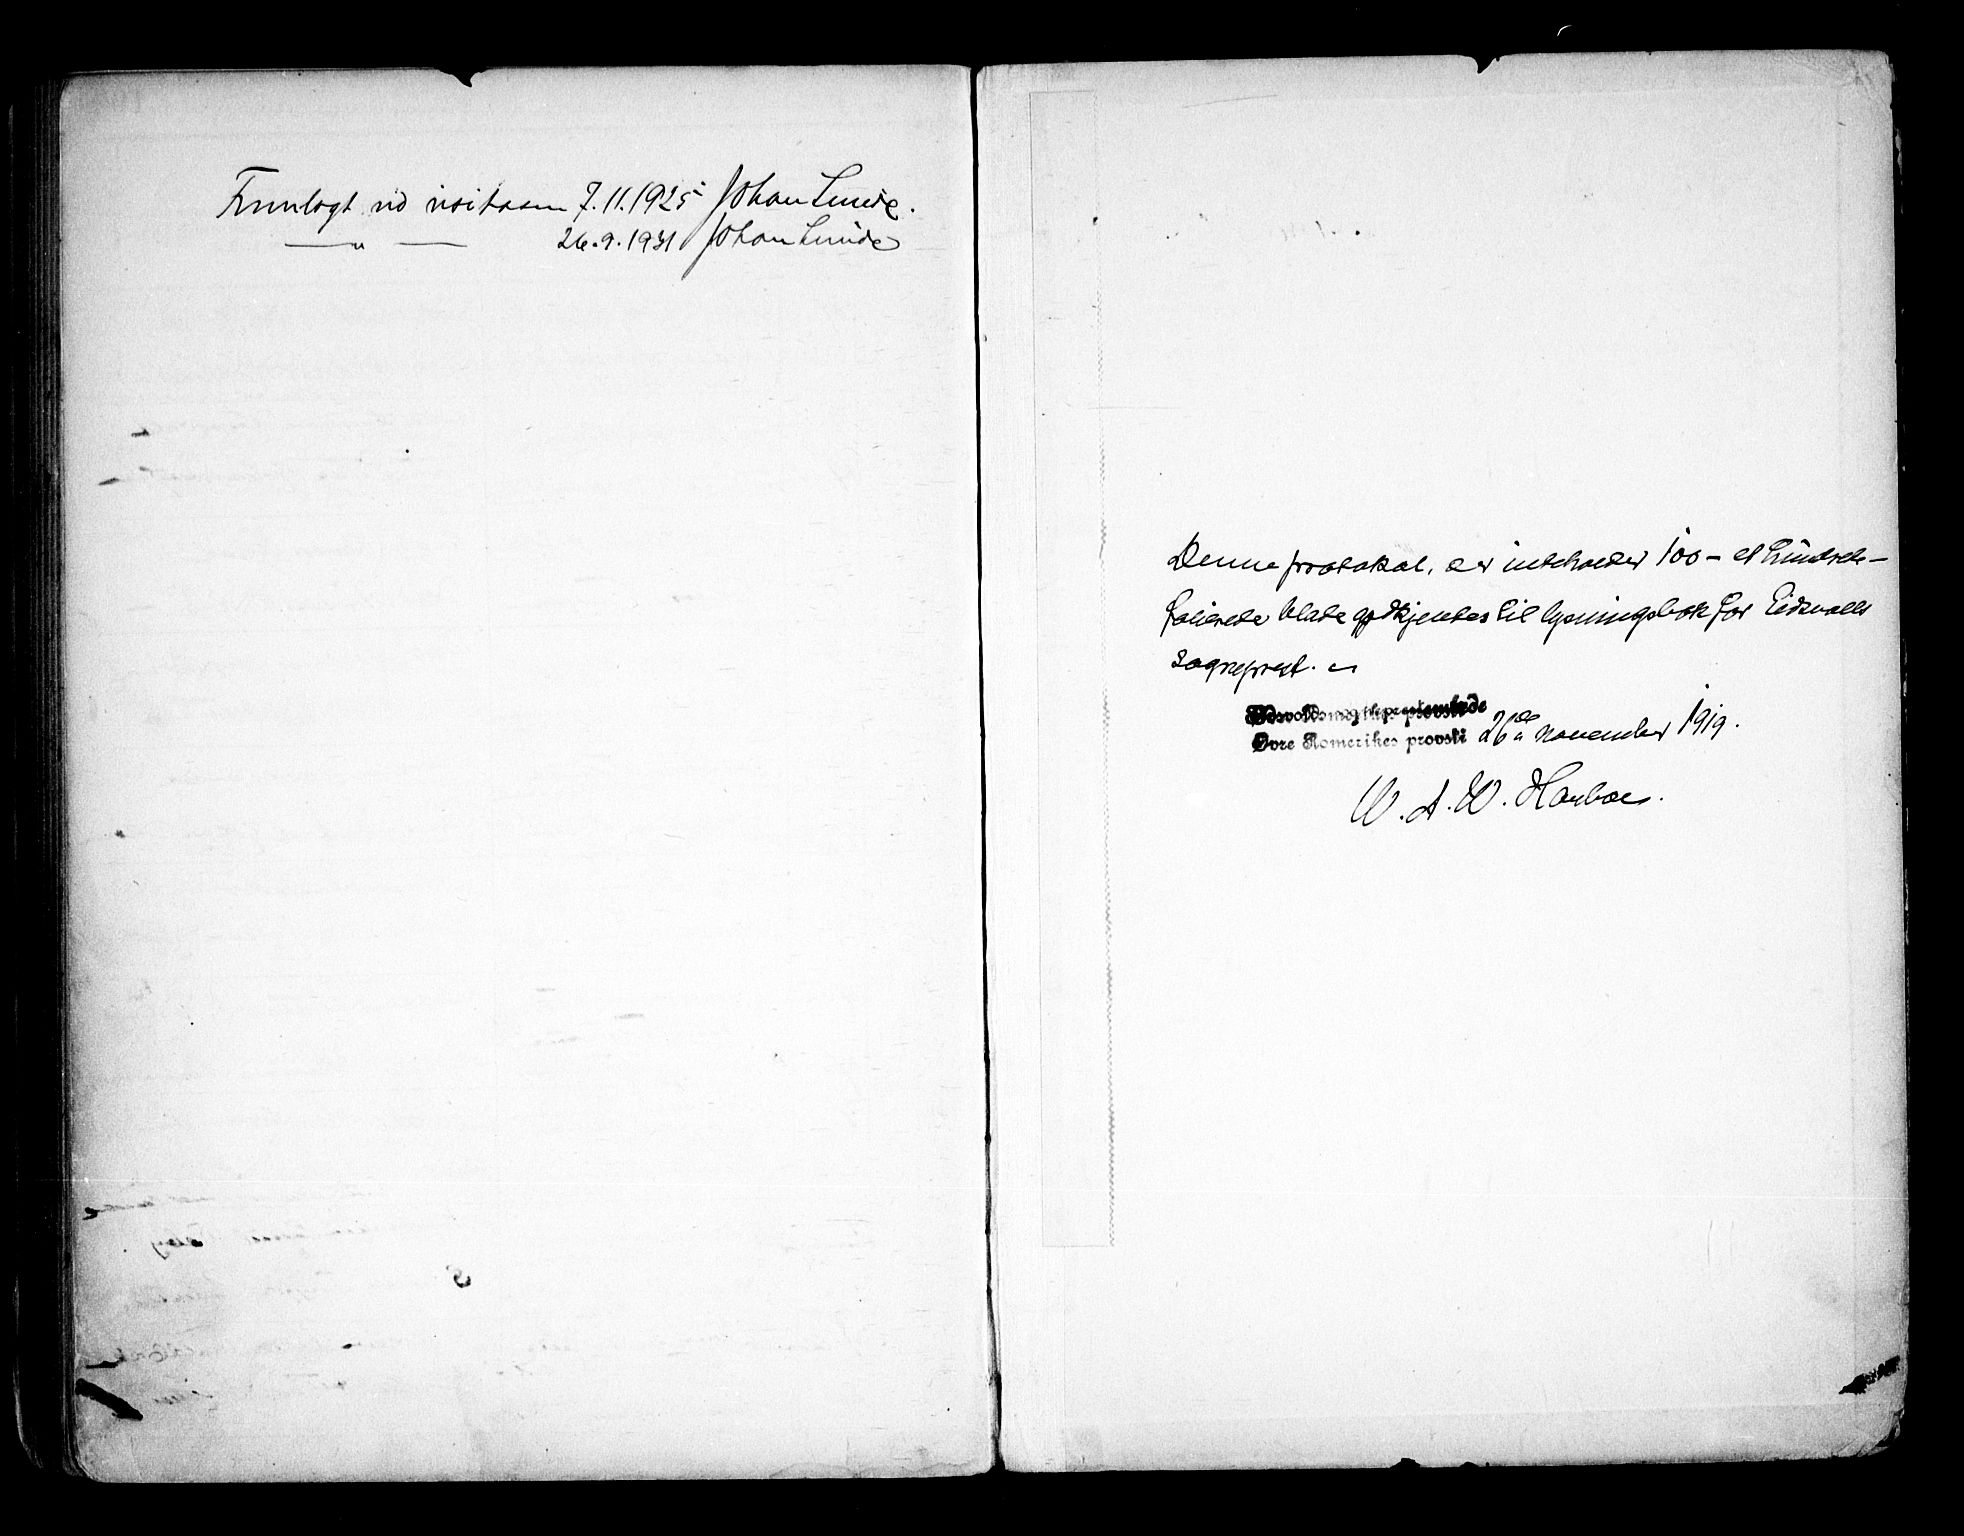 Fremlagt ved visitasen 7.11.1925 Johan Lunde.
— " — 26.9.1931 Johan Lunde
Denne protokol, der indeholder 100 – et hundrede –
folierede blade godkjendes til lysningsbok for Eidsvolls
sogneprest.
Øvre Romerikes provsti 26de november 1919.
W. A. W. Harboe.